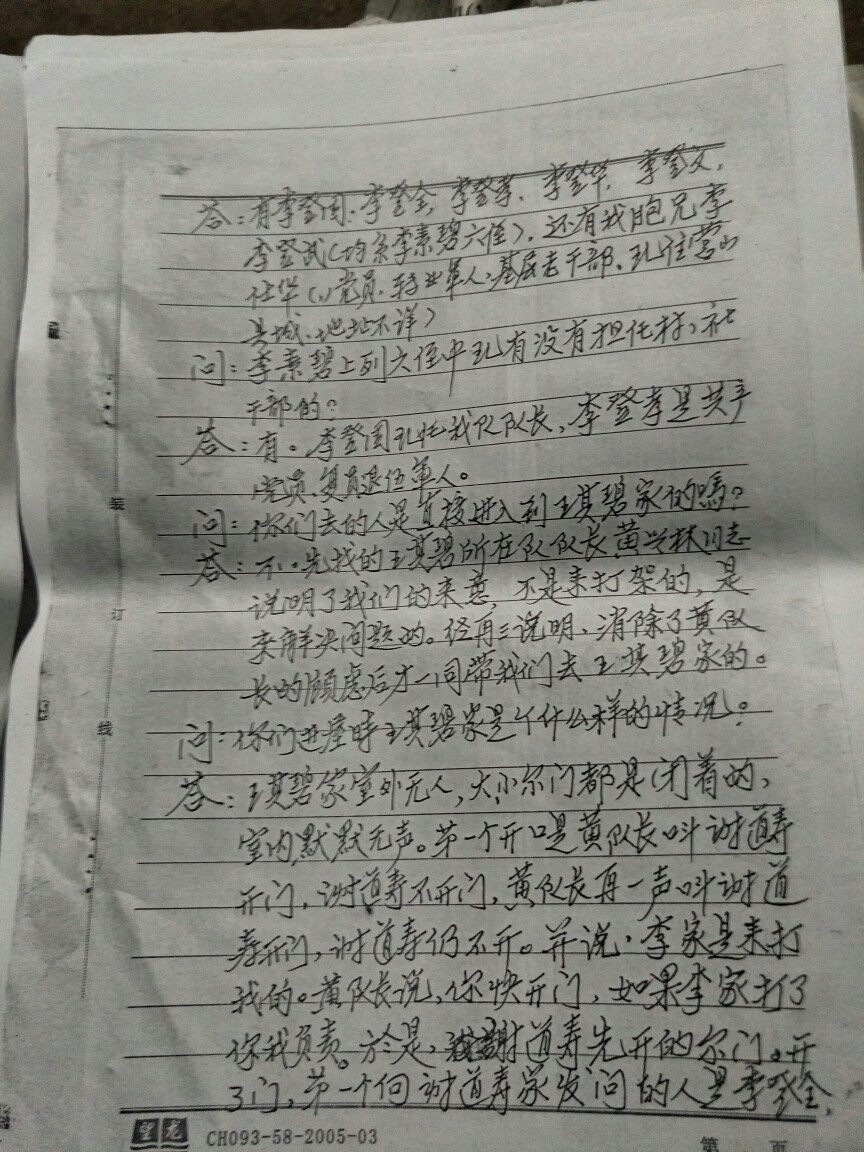 答：有李登国、李登全、李登孝、李登华、李登文、
李登武（均系李素碧六侄），还有我胞兄李
仕华（党员、转业军人、基层老干部、现住营山
县城、地址不详）
问：李素碧上列六侄中现有没有担任村、社
干部的？
答：有。李登国现任我队队长，李登孝是共产
党员、复员退伍軍人。
问：你们去的人是直接进入到王琪碧家的嗎？
答：不。先找的王琪碧所在队队长黄兴林同志
说明了我们的来意，不是来打架的，是
来解决问题的。经再三说明，消除了黄队
长的顾虑后才一同带我们去王琪碧家的。
问：你们进屋時王琪碧家是个什么样的情况？
答：王琪碧家室外无人，大小尔门都是闭着的，
室内默默无声。第一个开口是黄队长叫谢道寿
开门，谢道寿不开门，黄队长再一声叫谢道
寿开门，谢道寿仍不开。并说，李家是来打
我的。黄队长说，你快开门，如果李家打了
你我负责。於是，谢道寿先开的尔门。开
了门，第一个向谢道寿家发问的人是李登全，
装
订
线
望龙 CH093-58-2005-03
第 页